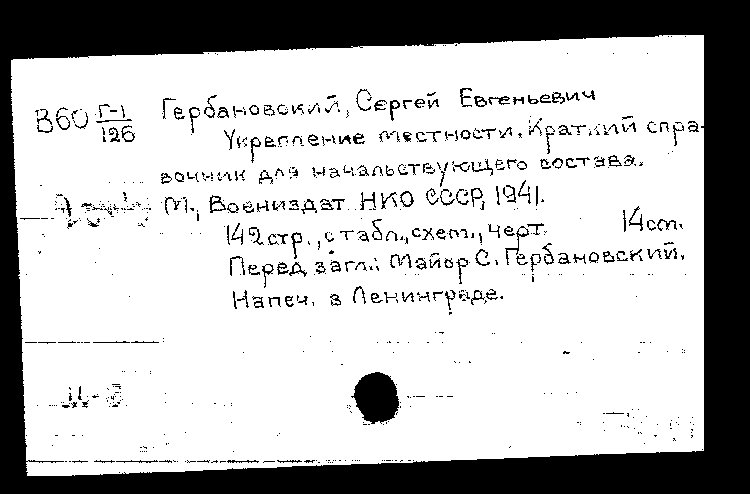 В60 Г-1/126 Гербановский, Сергей Евгеньевич
Укрепление местности. Краткий спра-
вочник для начальствующего состава.
М., Воениздат НКО СССР, 1941.
142стр., с табл., схем., черт. 14см.
Перед загл.: Майор С. Гербановский.
Напеч. в Ленинграде.